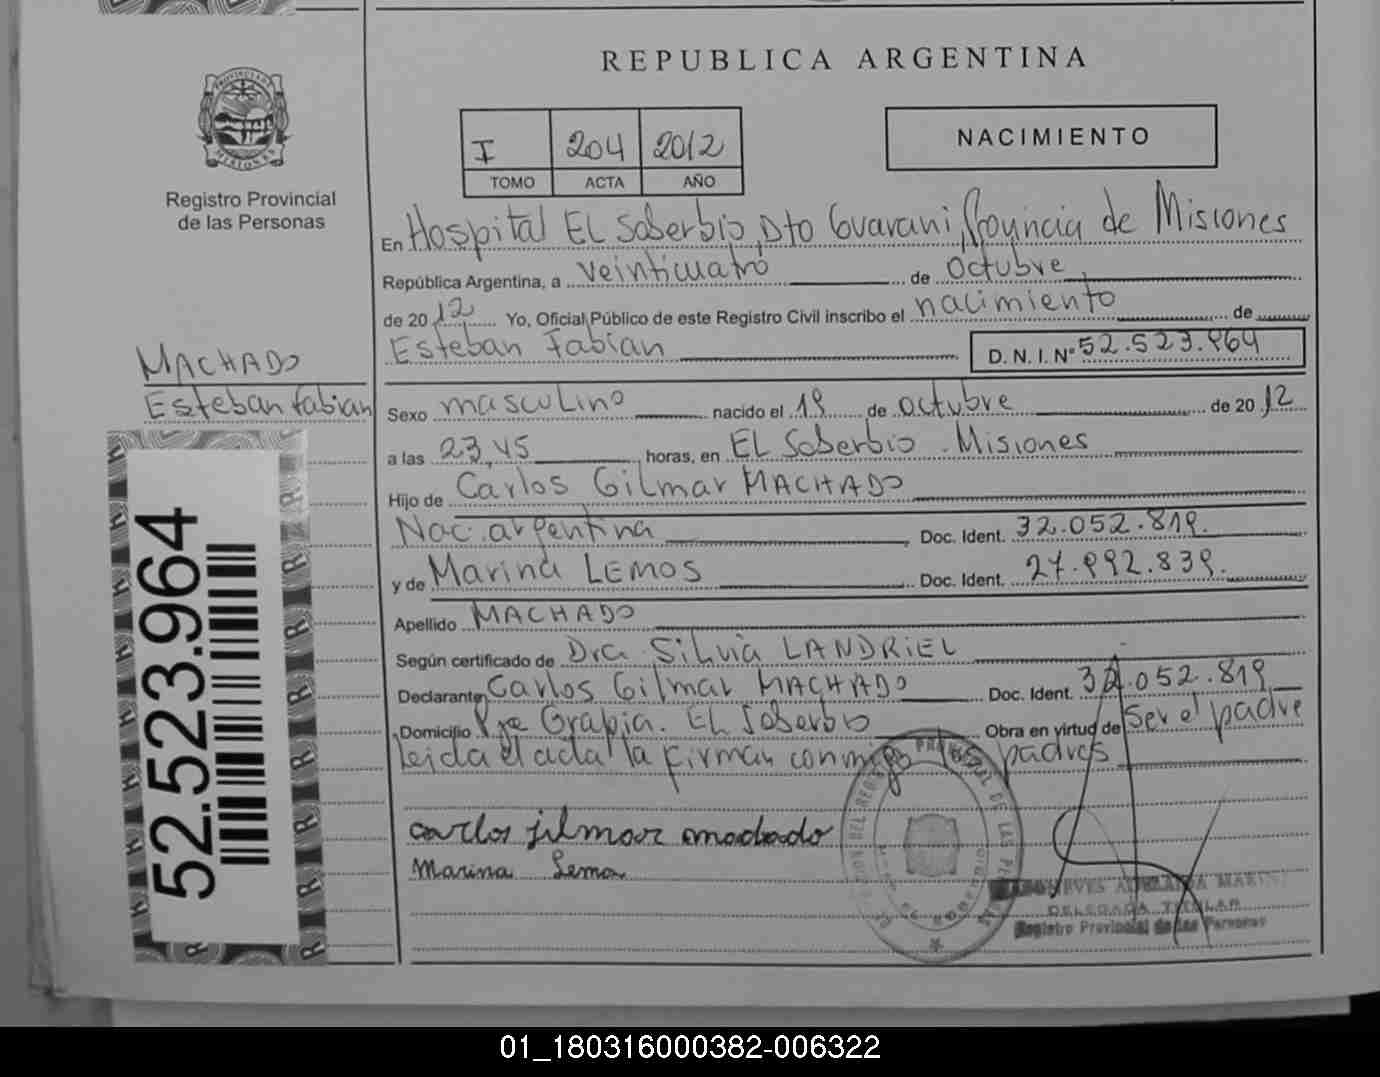 REPUBLICA ARGENTINA
I 204 2012
TOMO ACTA AÑO
NACIMIENTO
PROVINCIA DE MISIONES
Registro Provincial
de las Personas
En Hospital EL Soberbio, Dto Guarani, Provincia de Misiones
República Argentina, a veinticuatro de octubre
de 2012 Yo, Oficial Público de este Registro Civil inscribo el nacimiento de
Esteban Fabian D.N.I.Nº 52.523.964
MACHADO
Esteban Fabian
Sexo masculino nacido el 19 de octubre de 2012
a las 23,45 horas, en EL Soberbio - Misiones
Hijo de Carlos Gilmar MACHADO
Nac. argentina Doc. Ident. 32.052.819.
y de Marina LEMOS Doc. Ident. 27.992.839.
Apellido MACHADO
Según certificado de Dra Silvia LANDRIEL
Declarante Carlos Gilmar MACHADO Doc. Ident. 32.052.819
Domicilio Pje Grapia. EL Soberbio Obra en virtud de Ser el padre
leida el acta la firman conmigo los padres
52.523.964
carlos jilmar machado
Marina Lemo
ADELAIDA MARIN
DELEGADA TITULAR
Registro Provincial de las Personas
01_180316000382-006322